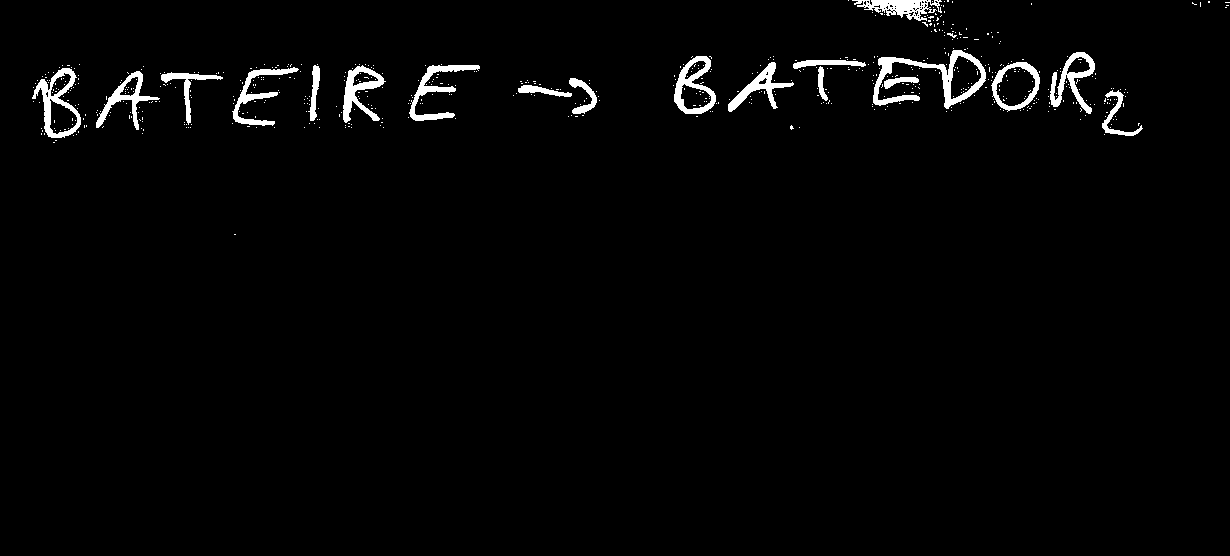 BATEIRE → BATEDOR₂